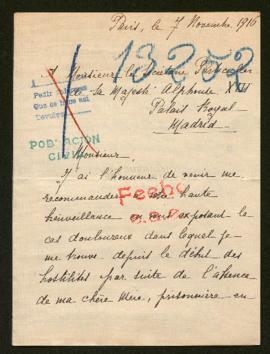 Paris, le 7 Novembre 1916
13252
A Monsieur le Secrétaire Particulier
de Sa Majesté Alphonse XIII
Palais Royal
Madrid
Pedir
Que se
POBLACION
CIVIL
Monsieur,
J'ai l'honneur de venir me
recommander à votre haute
bienveillance en vous exposant le
cas douloureux dans lequel je
me trouve depuis le début des
hostilités par suite de l'absence
de ma chère Mère, prisonnière en
Fecho